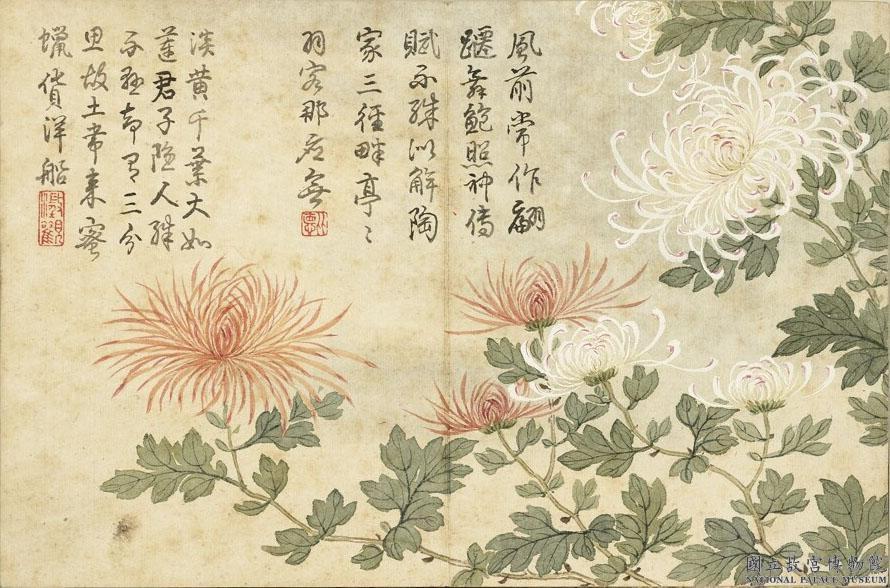 風前常作翩
躚舞鮑照神傳
賦不殊似解陶
家三徑畔亭〻
羽客那應無
淡黃千葉大如
蓮君子隱人殊
不孤却有三分
思故土常來蜜
蠟貨洋船
國立故宮博物院
NATIONAL PALACE MUSEUM